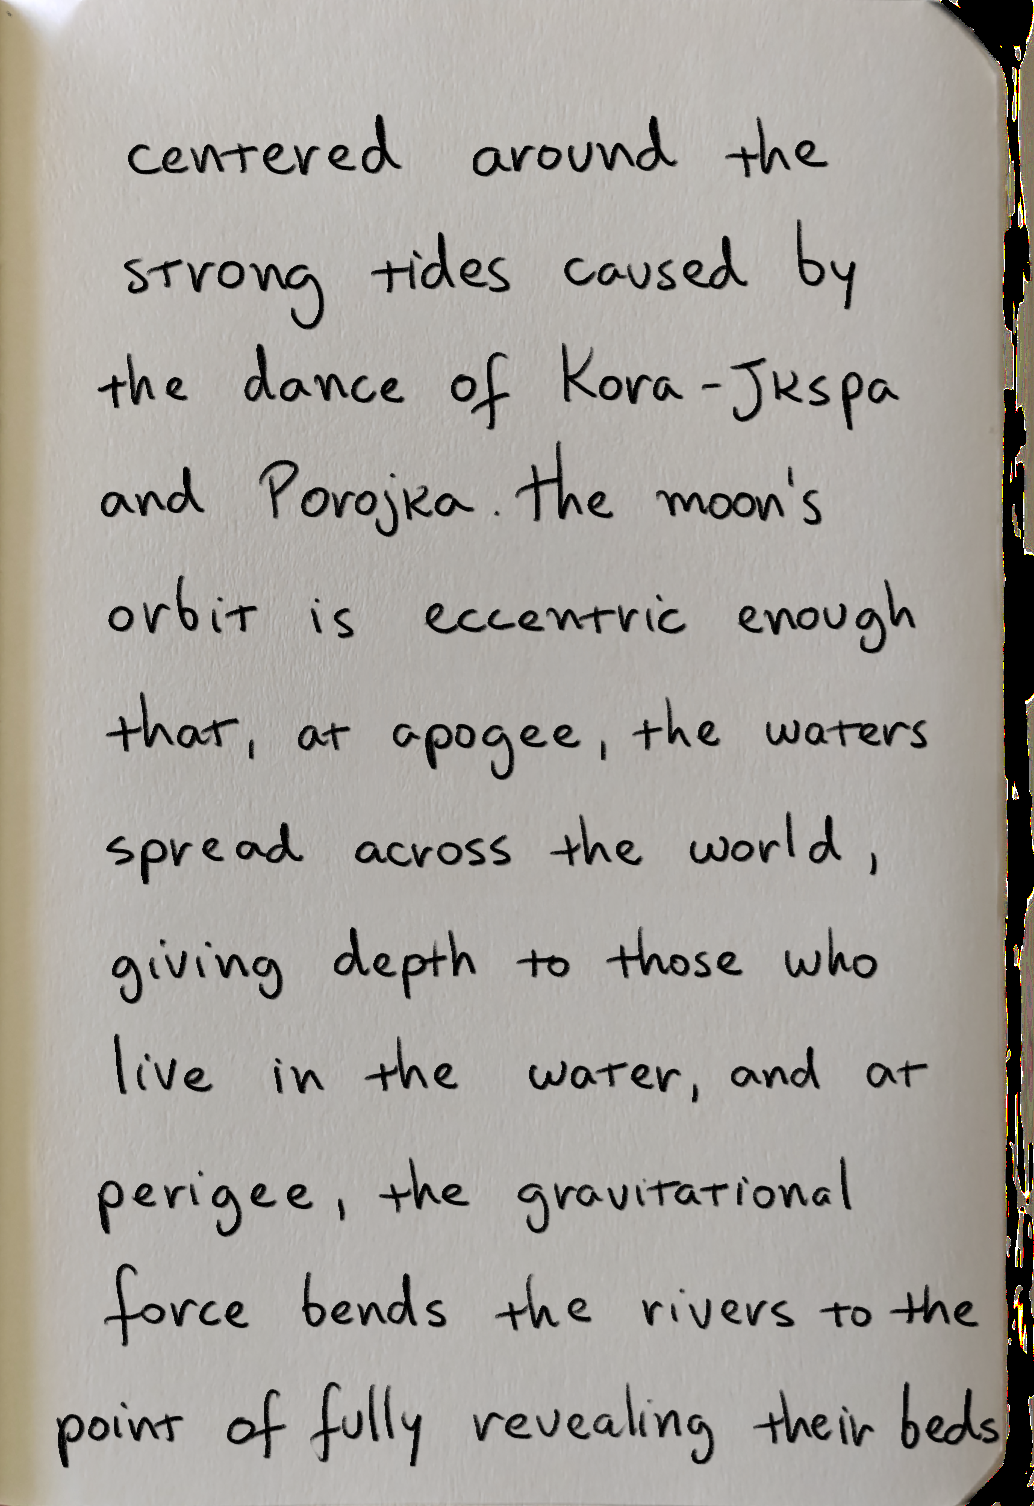 centered around the
strong tides caused by
the dance of Kora-Jkspa
and Porojka. the moon's
orbit is eccentric enough
that, at apogee, the waters
spread across the world,
giving depth to those who
live in the water, and at
perigee, the gravitational
force bends the rivers to the
point of fully revealing their beds